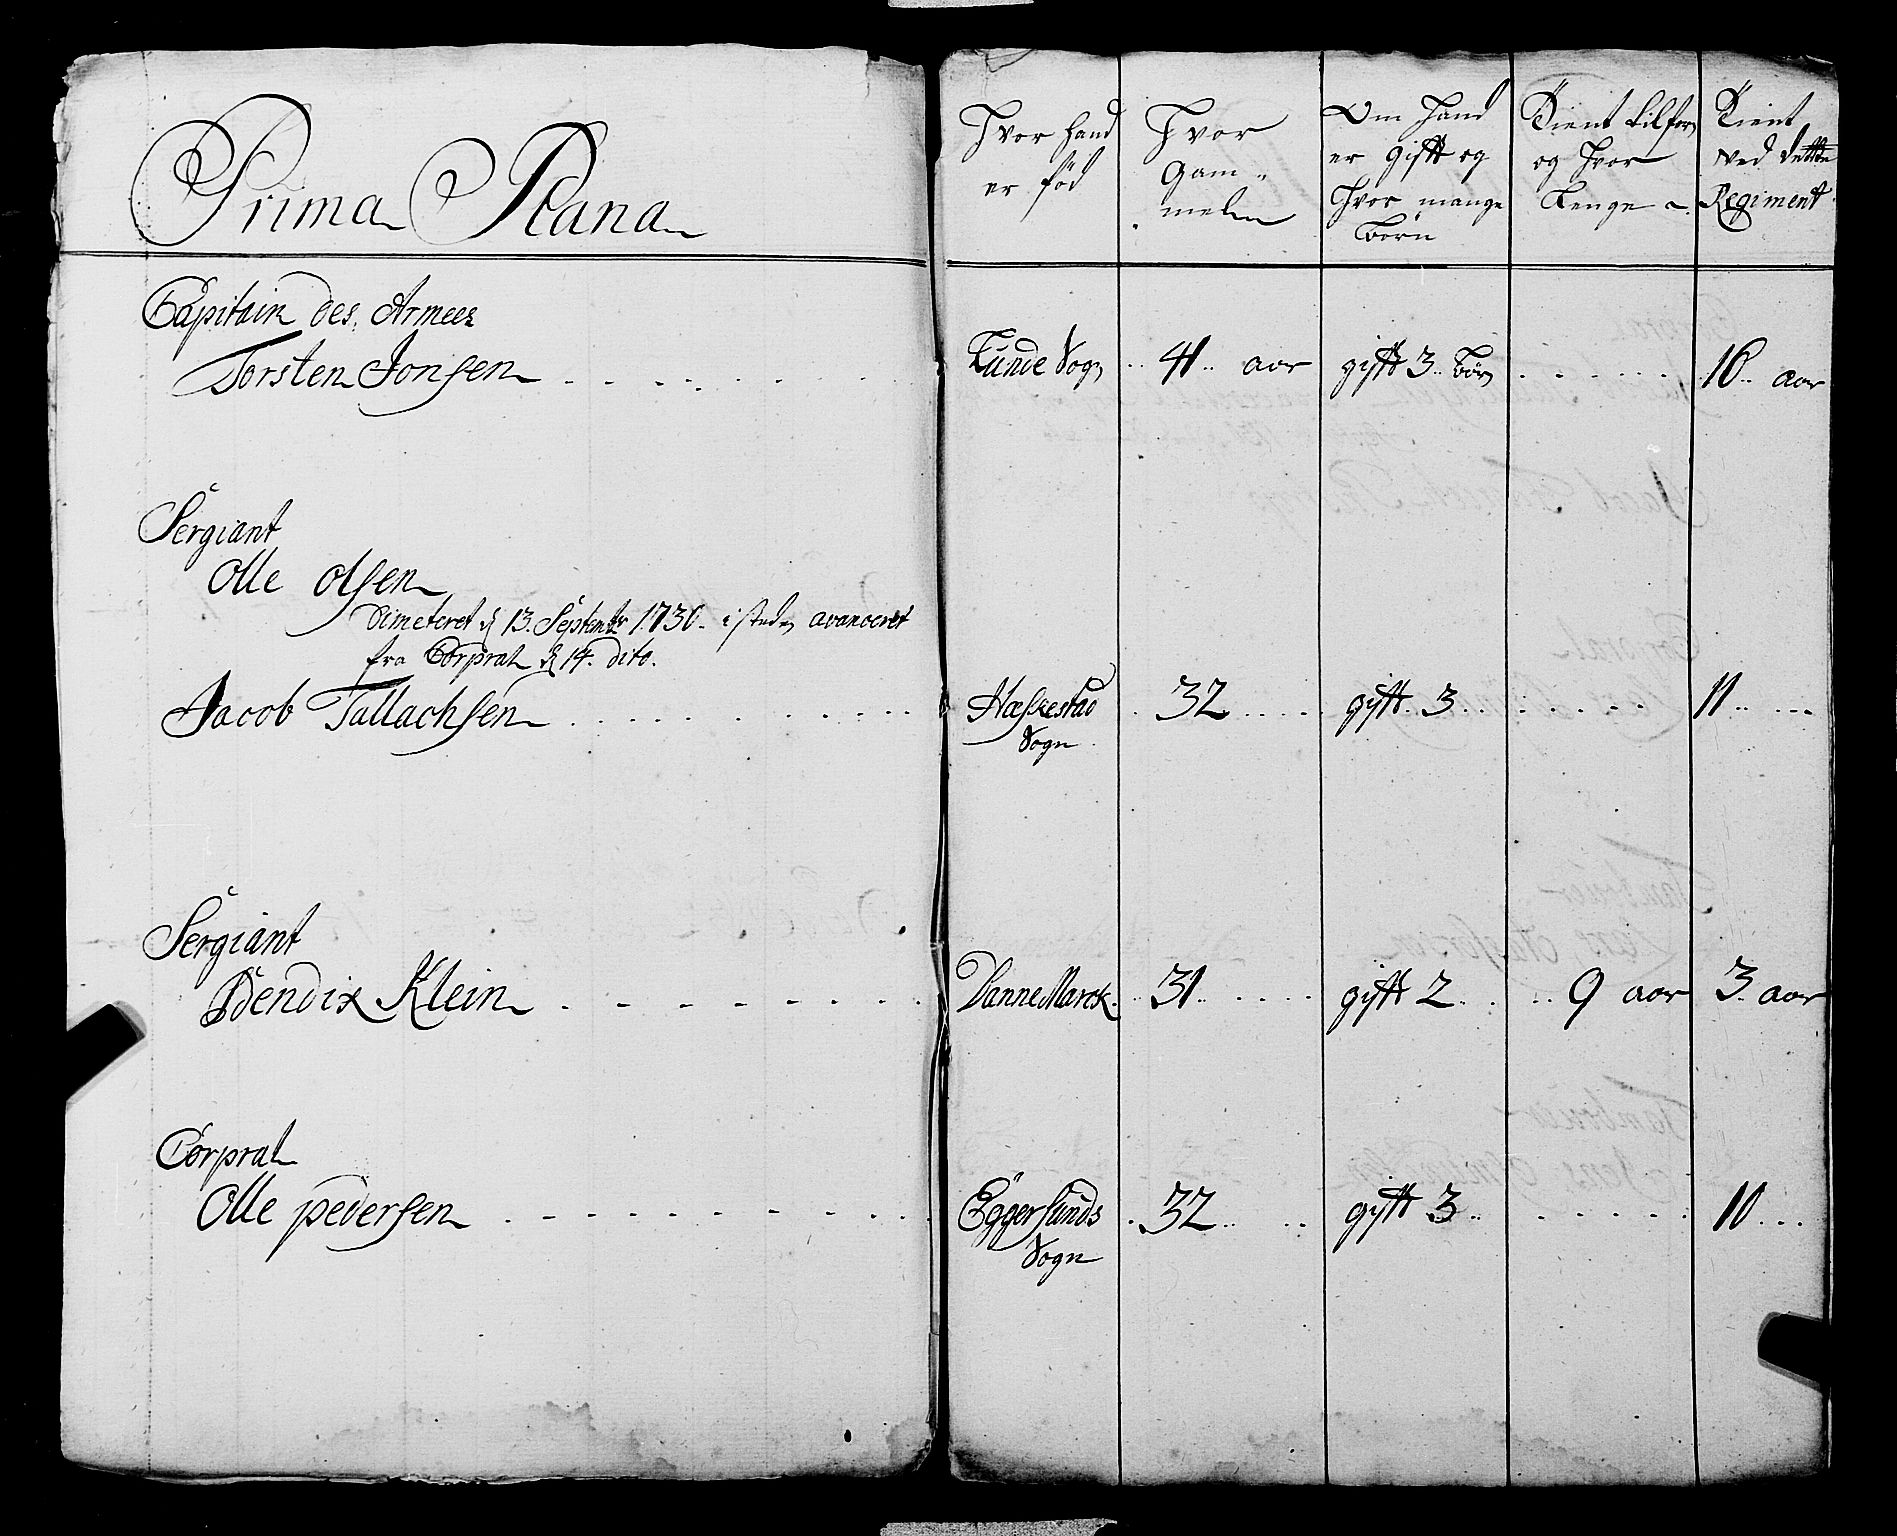 Prima Plana
Capitain des Armees
Torsten Jonsen
Sergiant
Olle olsen
Dimeteret d 13. Septembr 1730. i steden avanceret
fra Corpral d 14. dito.
Jacob Tallachsen
Sergiant
Bendix Klein
Corpral
Olle pedersen
Hvor hand
er fød
Hvor
Gam-
mel
Om hand
er gift og
Hvor mange
Børn
Tient tilforn
og Hvor
Lenge
Tient
ved dette
Regiment
Lunde Sogn 41 aar gift 3 Børn 16 aar
Hæskestad 32 gift 3 11
Sogn
DanneMarck 31 gift 2 9 aar 3 aar
Eggersunds 32 gift 3 10
Sogn